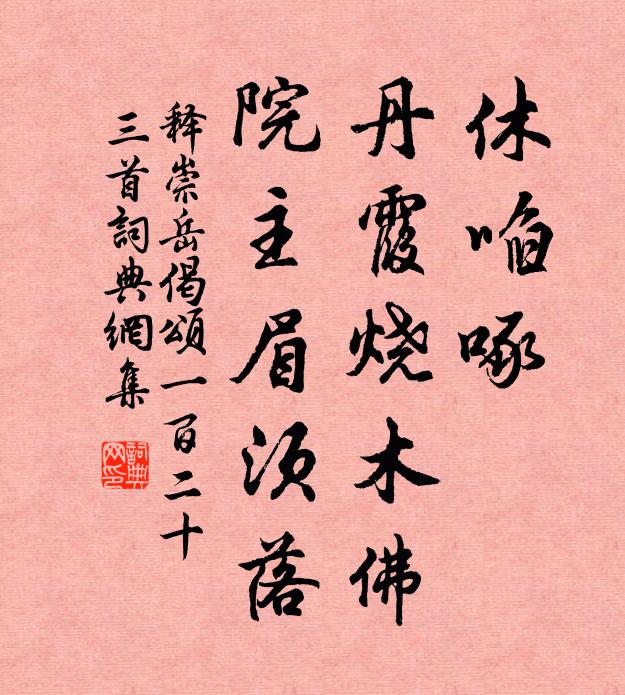 休啗啄
丹霞烧木佛
院主眉须落
释崇岳偈頌一百二十
三首詞典網集
詞典
网印